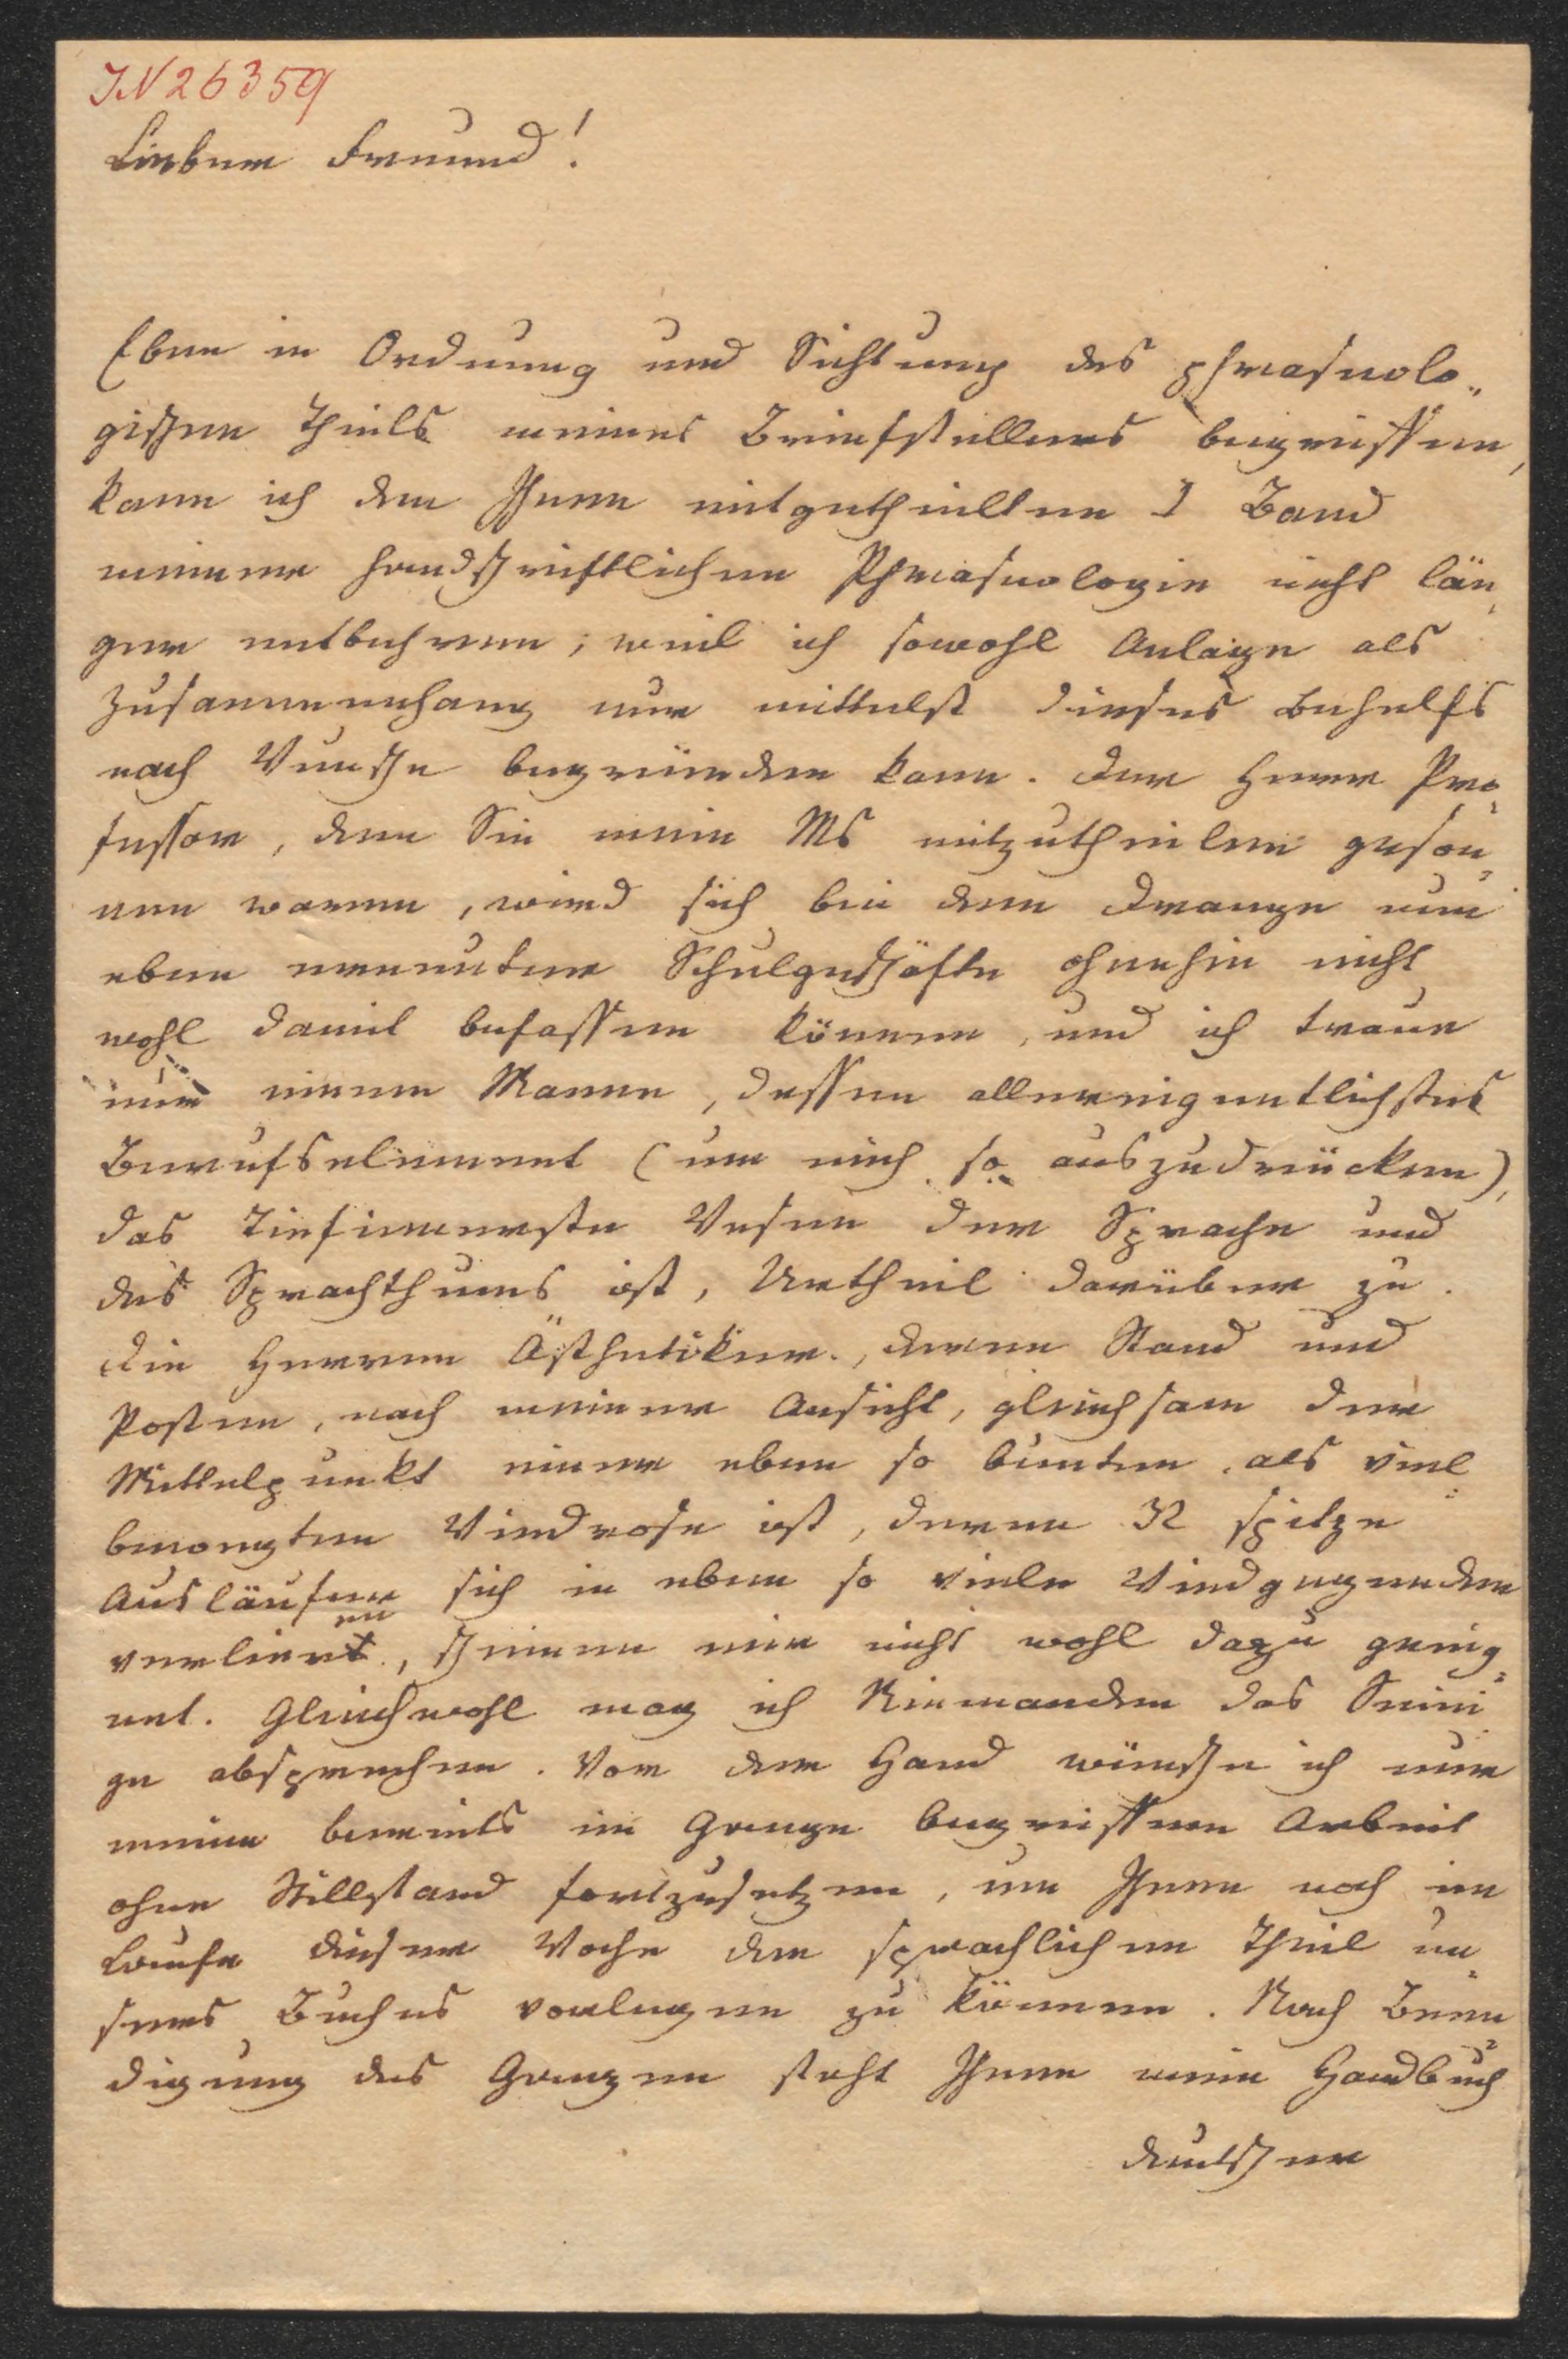 IN 26359
Lieber Freund!
Eben in Ordnung und Sichtung des phraseolo„
gischen Theils meines Briefstellers begriffen,
kann ich den Ihnen mitgetheilten I Band
meiner handschriftlichen Phraseologie nicht län„
ger entbehren; weil ich sowohl Anlage als
Zusammenhang nur mittelst dieses Behelfs
nach Wunsche begründen kann. Der Herr Pro„
fessor, dem Sie mein MS mitzutheilen geson„
nen waren, wird sich bei dem Drange nun
eben erneuter Schulgeschäfte ohnehin nicht
wohl damit befassen können, und ich traue
nur einem Manne, dessen allereigentlichstes
Berufselement (um mich so auszudrücken),
das Tiefinnerste Wesen der Sprache und
des Sprachthums ist, Urtheil darüber zu.
Die Herren Ästhetiker, deren Stand und
Posten, nach meiner Ansicht, gleichsam der
Mittelpunkt einer eben so bunten als viel„
bewegten Windrose ist, deren 32 spitze
Ausläufer sich in eben so viele Windgegenden
verlieren, scheinen mir nicht wohl dazu geeig„
net. Gleichwohl mag ich Niemanden das Seini„
ge absprechen. Vor der Hand wünsche ich nur
meine bereits im Gange begriffenen Arbeit
ohne Stillstand fortzusetzen, um Ihnen noch im
Laufe dieser Woche den sprachlichen Theil un„
seres Buches vorlegen zu können. Nach Been„
digung des Ganzen steht Ihnen mein Handbuch
deutscher